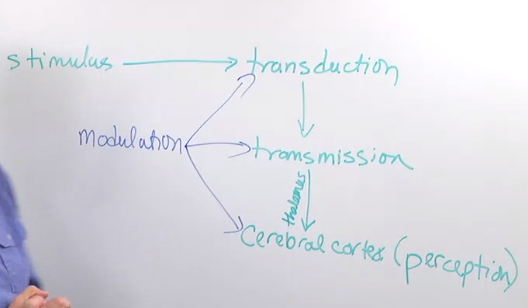 stimulus transduction
modulation transmission
thalamus
Cerebral cortex (perception)